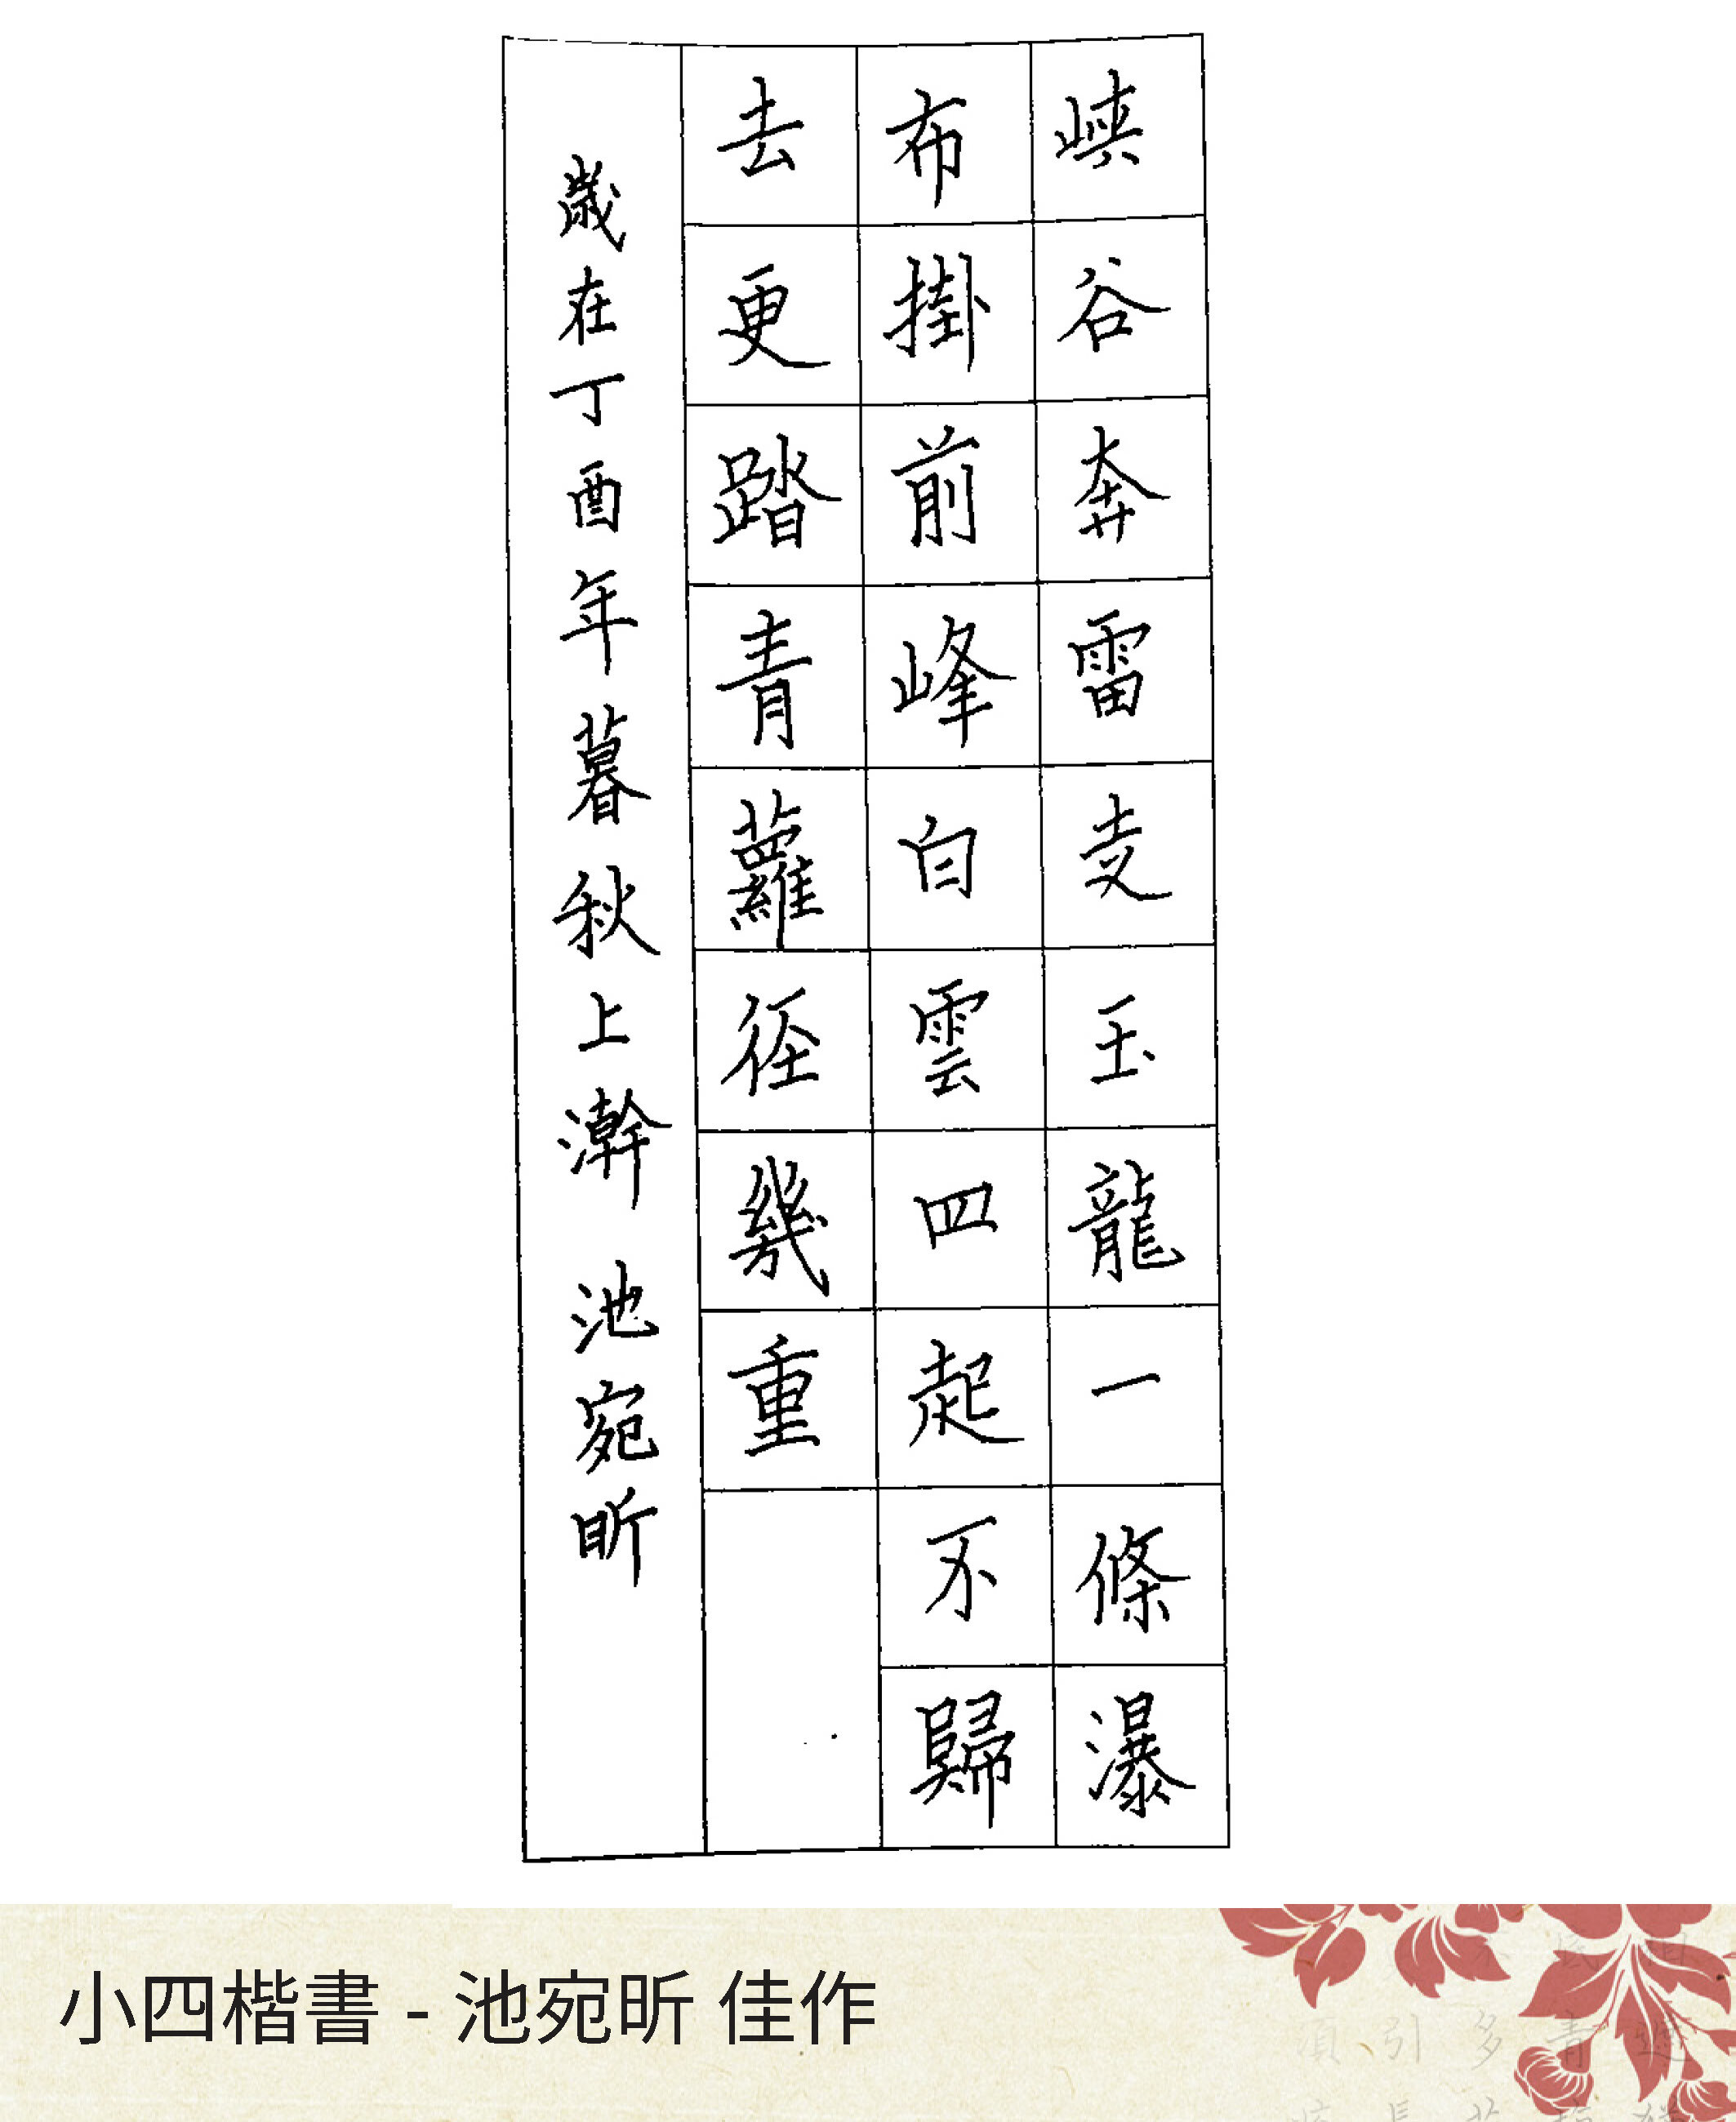 峽谷奔雷走玉龍一條瀑
布掛前峰白雲四起不歸
去更踏青蘿徑幾重
歲在丁酉年暮秋上澣 池宛昕
小四楷書 - 池宛昕 佳作